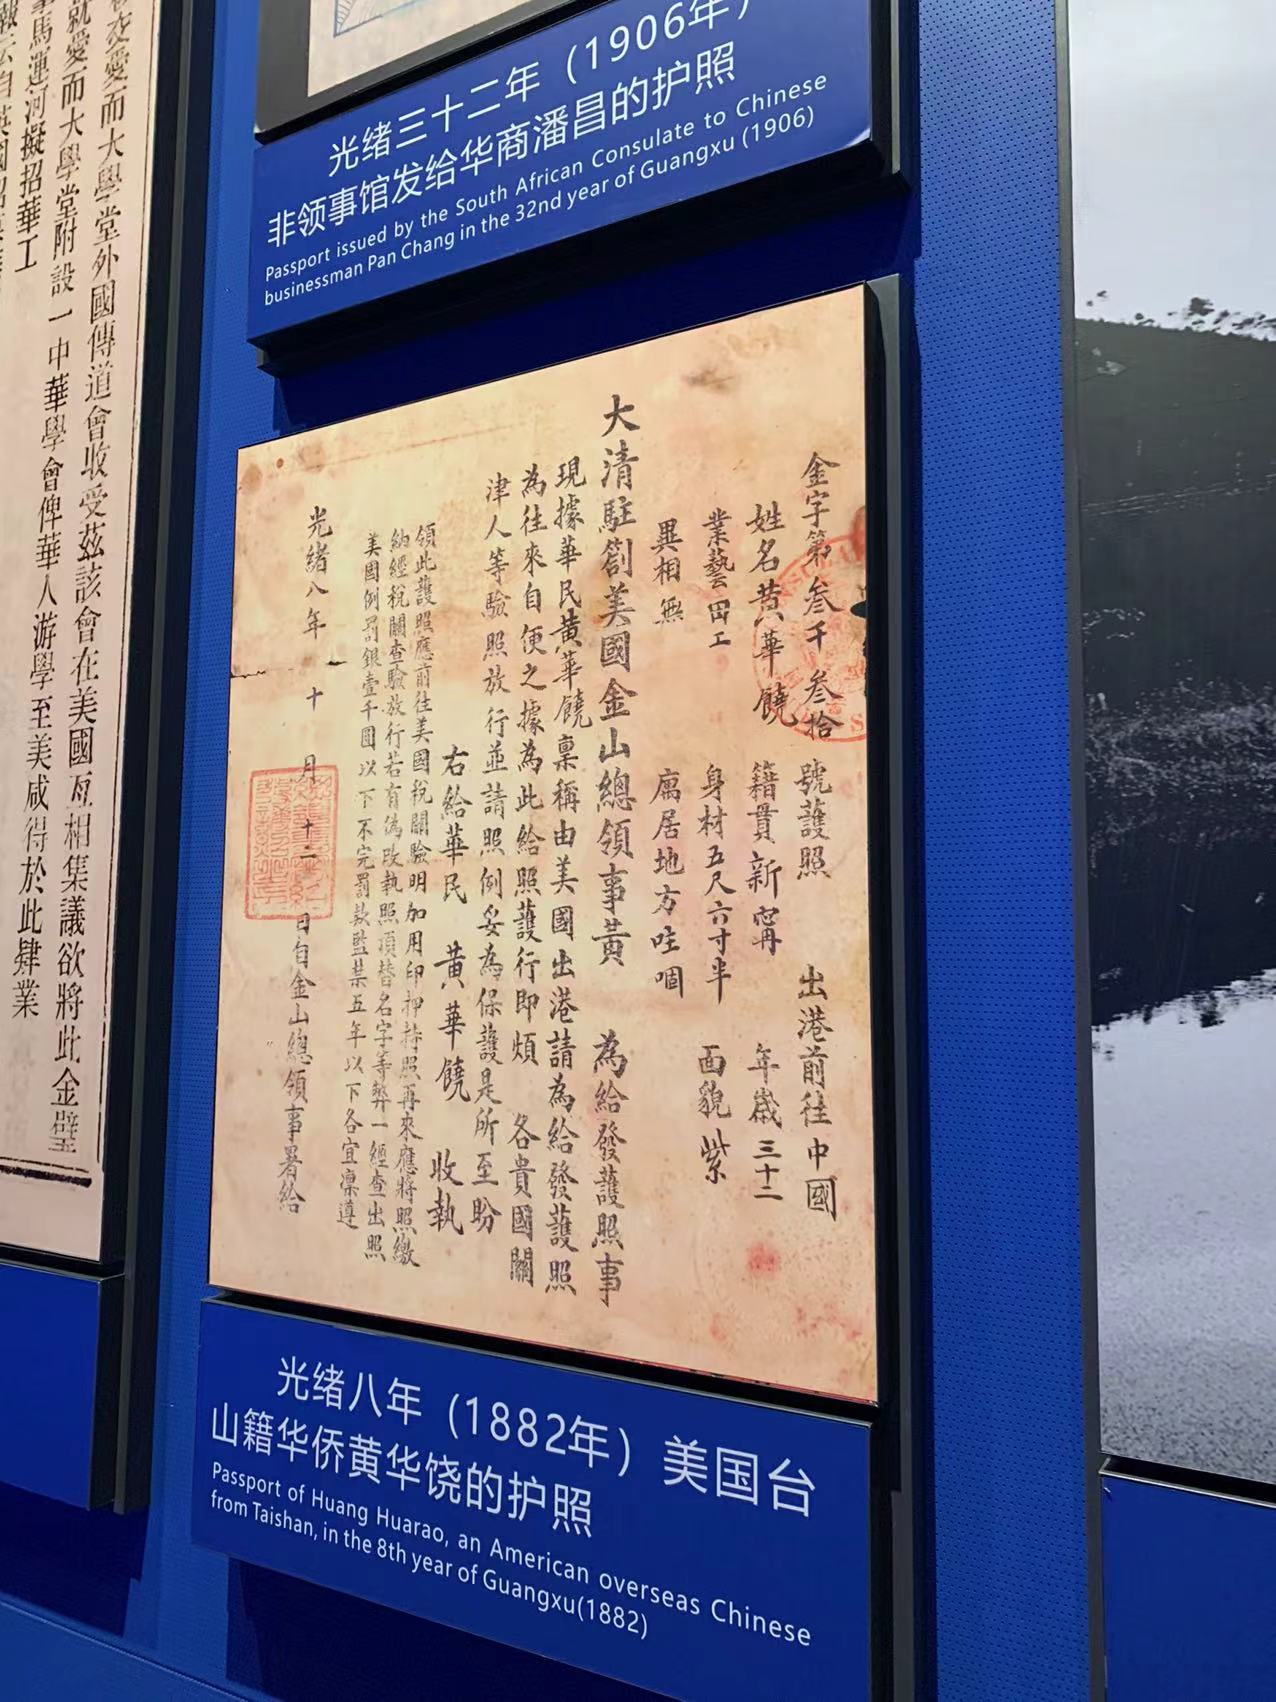 光绪三十二年（1906年）
非领事馆发给华商潘昌的护照
Passport issued by the South African Consulate to Chinese
businessman Pan Chang in the 32nd year of Guangxu (1906)
金字第叁千叁拾號護照 出港前往中國
姓名黄華饒 籍貫新寗 年歲三十二
業藝田工 身材五尺六寸半 面貌紫
異相無 寓居地方咗啯
大清駐劄美國金山總領事黄 為給發護照事
現據華民黄華饒稟稱由美國出港請為給發護照
為往來自便之據為此給照護行即煩 各貴國關
津人等驗照放行並請照例妥為保護是所至盼
右給華民 黄華饒 收執
領此護照應前往美國稅關驗明加用印押持照再來應將照繳
納經稅關查驗放行若有偽改執照頂替名字等弊一經查出照
美國例罰銀壹千圓以下不完罰款監禁五年以下各宜凜遵
光緒八年 十 月 十二 日自金山總領事署給
光绪八年（1882年）美国台
山籍华侨黄华饶的护照
Passport of Huang Huarao, an American overseas Chinese
from Taishan, in the 8th year of Guangxu(1882)
交愛而大學堂外國傳道會收受茲該會在美國互相集議欲將此金壁
就愛而大學堂附設一中華學會俾華人游學至美咸得於此肄業
馬運河擬招華工